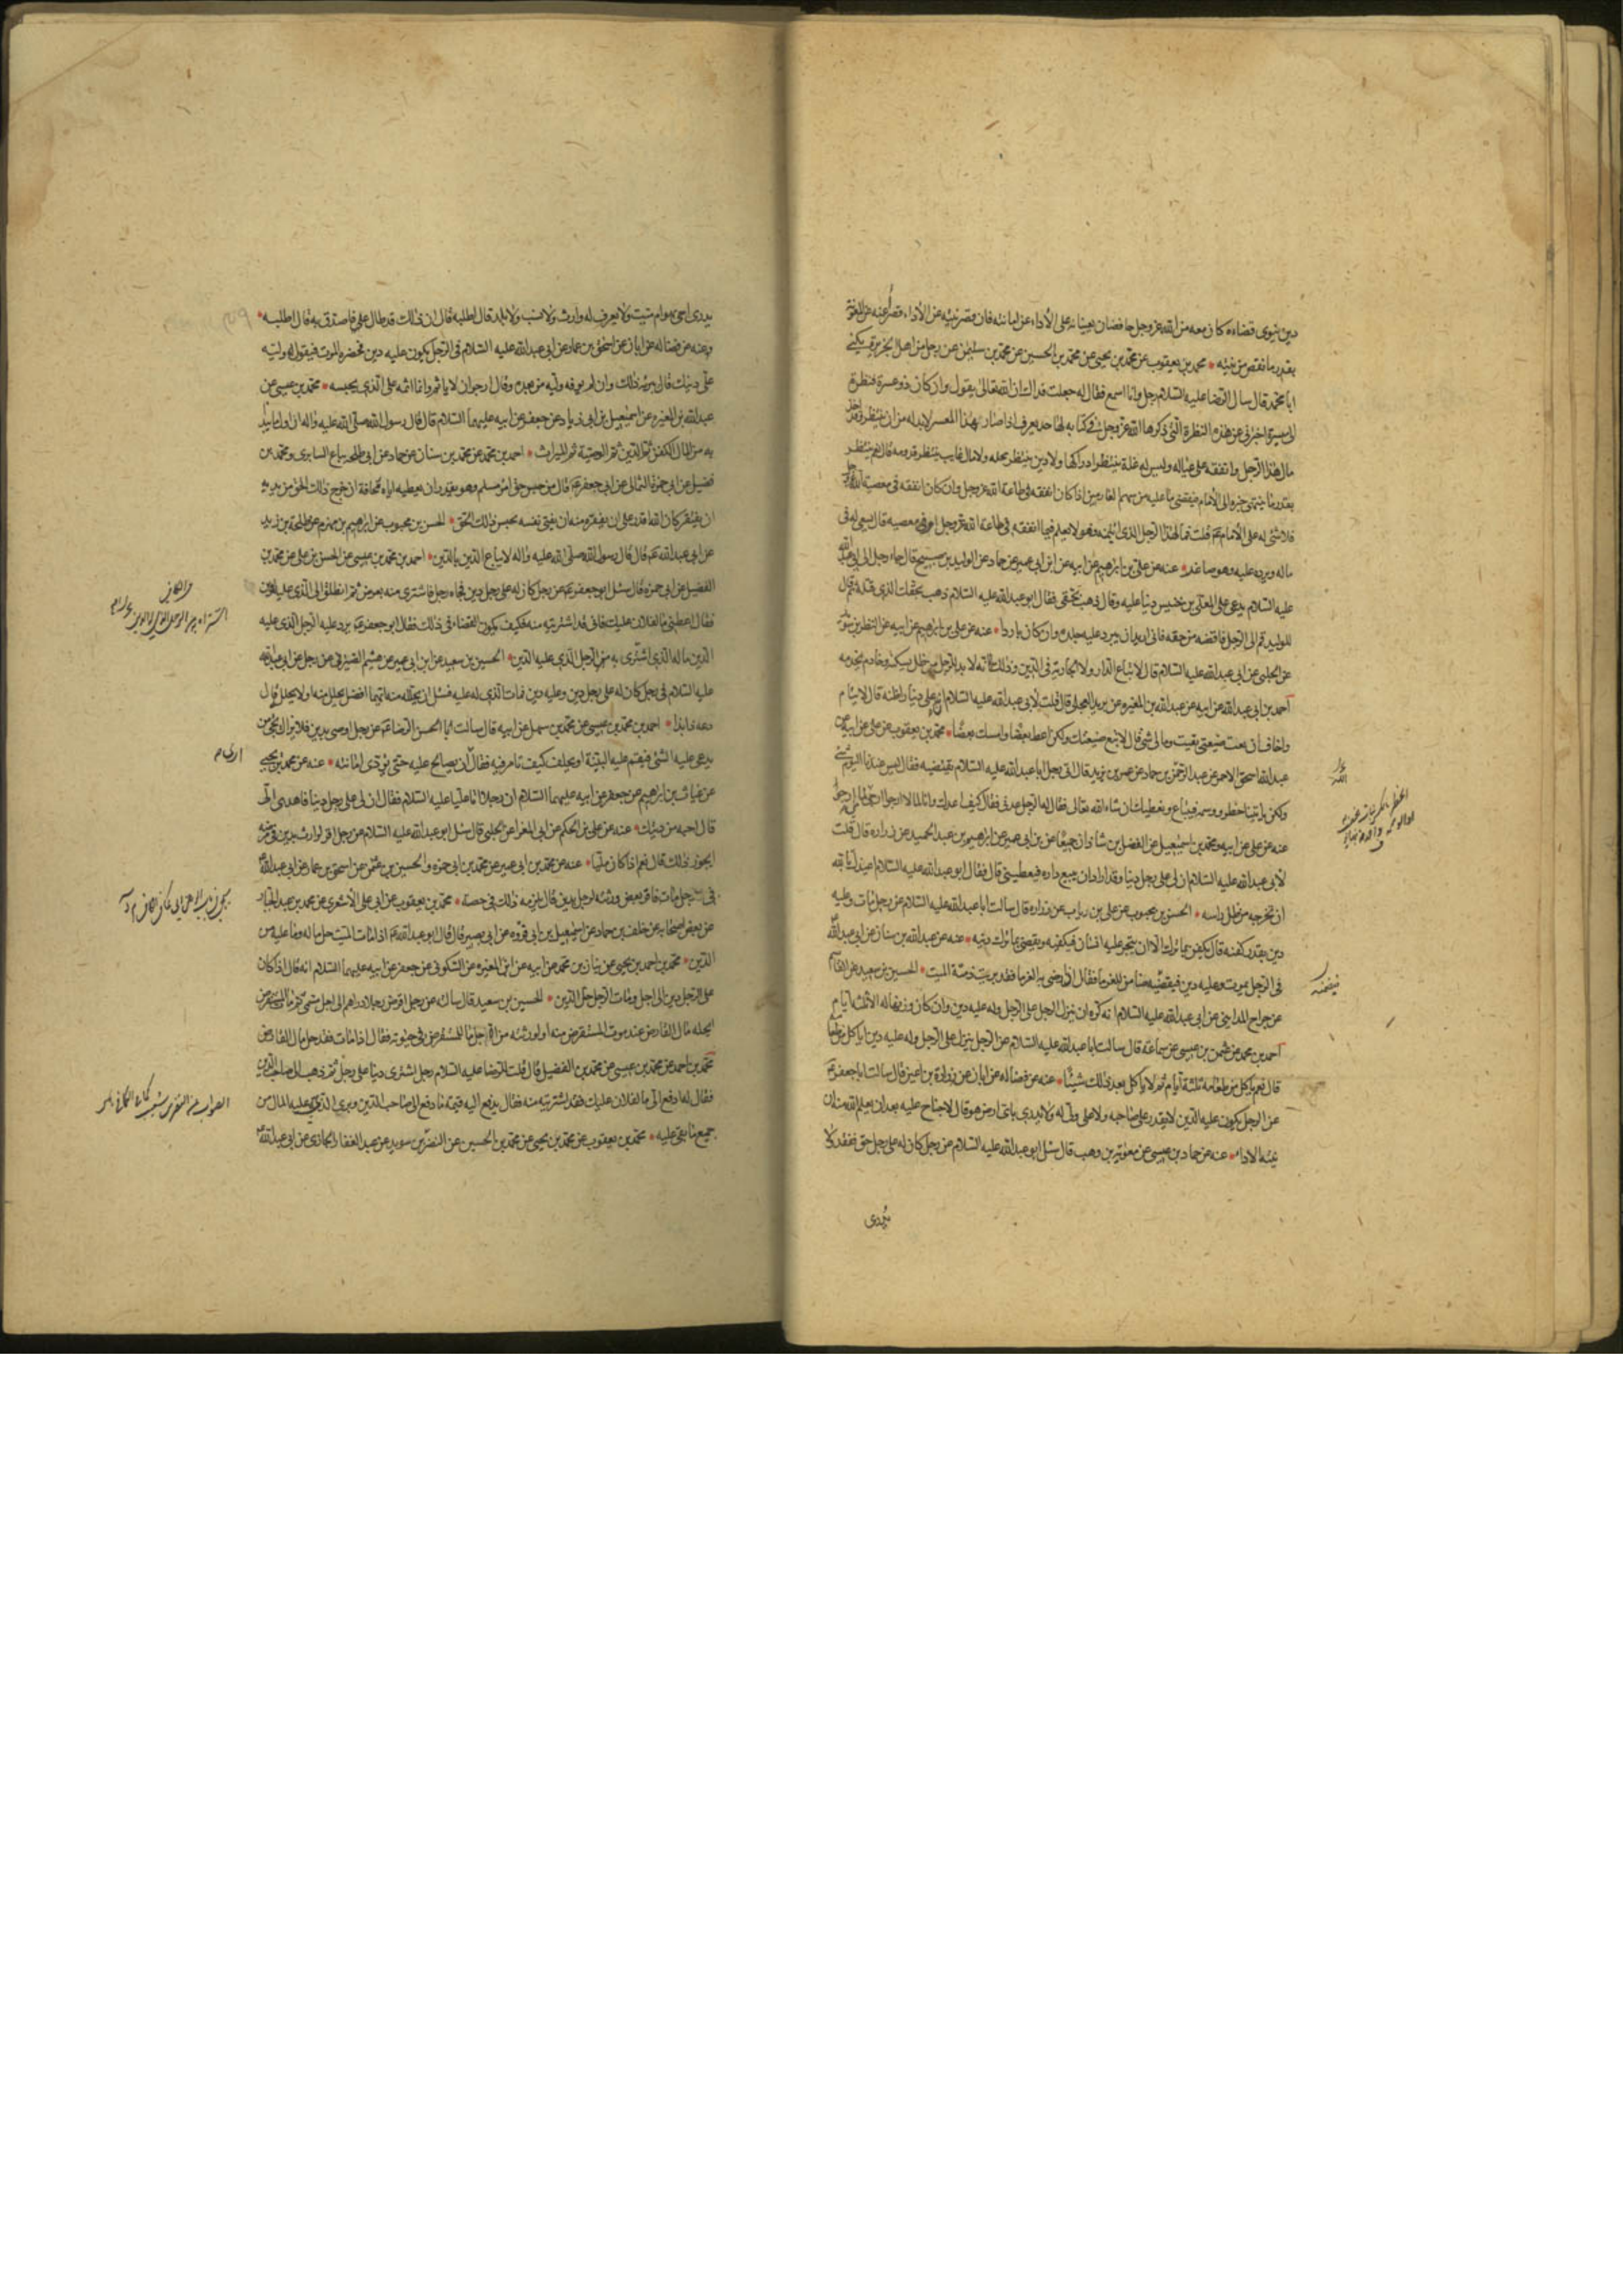 دين ينوى قضاءه كان معه من الله عز وجل حافظان يعينانه على الأداء عن امانته فان قصر نيته عن الأداء قصرا عنه من المعونة
بقدر ما نقص من نيته محمد بن يعقوب عن محمد بن يحيى عن محمد بن الحسين عن محمد بن سليمن عن رجل من اهل الجزيرة يكنى
ابا محمد قال سال الرضا عليه السلام رجل وانا اسمع فقال له جعلت فداك ان الله تعالى يقول وان كان ذو عسرة فنظرة
الى ميسرة اخبرنى عن هذه النظرة التى ذكرها الله عز وجل فى كتابه لها حد يعرف اذا صار هذا المعسر لا بد له من ان ينتظر وقد اخذ
مال هذا الرجل وانفقه على عياله وليس له غلة ينتظر ادراكها ولا دين ينتظر محله ولا مال غايب ينتظر قدومه قال نعم ينتظر
بقدر ما ينتهى خبره الى الأمام فيقضى ما عليه من سهم الغارمين اذا كان انفقه فى طاعة الله عز وجل وان كان انفقه فى معصية الله عز وجل
فلا شئ له على الأمام قلت فما لهذا الرجل الذى ائتمنه وهو لا يعلم فيما انفقه فى طاعة الله عز وجل ام فى معصيه قال يسعى له فى
ماله ويرده عليه وهو صاغر عنه عن على بن ابرهيم عن ابيه عن ابن ابى عمير عن حماد عن الوليد بن صبيح قال جاء رجل الى ابى عبد الله
عليه السلام يدعى على المعلى بن خنيس دينا عليه وقال ذهب بحقى فقال ابو عبد الله عليه السلام ذهب بحقك الذى قتله ثم قال
للوليد قم الى الرجل فاقضه من حقه فانى اريد ان يبرد عليه جلده وان كان باردا عنه عن على بن ابراهيم عن ابيه عن النضر بن سويد
عن الحلبى عن ابى عبد الله عليه السلام قال لا تباع الدار ولا الجارية فى الدين وذلك انه لا بد للرجل من ظل يسكنه وخادم يخدمه
احمد بن ابى عبد الله عن ابيه عن عبد الله بن المغيره عن بريد العجلى قال قلت لأبى عبد الله عليه السلام ان على دينا واظنه قال لايتام
واخاف ان بعت ضيعتى بقيت وما لى شئ قال لا تبع ضيعتك ولكن اعط بعضا وامسك بعضا محمد بن يعقوب عن على عن ابيه عن
عبد الله اسحق الاحمر عن عبد الرحمن بن حماد عن عمر بن يزيد قال اتى رجل ابا عبد الله عليه السلام يقتضيه فقال ليس عندنا اليوم شئ
ولكن ياتينا خطر ووسمه فيباع ونعطيك ان شاء الله تعالى فقال له الرجل عدنى فقال كيف اعدك وانا لما لا ارجوا ارجى منى لما ارجوا
عنه عن على عن ابيه ومحمد بن اسمعيل عن الفضل بن شاذان جميعا عن بن ابى عمير عن ابرهيم بن عبد الحميد عن زراره قال قلت
لأبى عبد الله عليه السلام ان لى على رجل دينا وقد اراد ان يبيع داره فيعطينى قال فقال ابو عبد الله عليه السلام اعيذك بالله
ان تخرجه من ظل راسه الحسن بن محبوب عن على بن رئاب عن زراره قال سالت ابا عبد الله عليه السلام عن رجل مات وعليه
دين بقدر كفنه قال يكفن بما ترك الا ان يتجر عليه انسان فيكفنه ويقضى بما ترك دينه عنه عن عبد الله بن سنان عن ابى عبد الله
فى الرجل يموت وعليه دين فيقضيه ضامن للغرماء فقال اذا رضى به الغرماء فقد برئت ذمة الميت الحسين بن سعيد عن القاسم
عن جراح المداينى عن ابى عبد الله عليه السلام انه كره ان ينزل الرجل على الرجل وله عليه دين وان كان وزنها له الا ثلثه ايام
احمد بن محمد عن عثمن بن عيسى عن سماعة قال سالت ابا عبد الله عليه السلام عن الرجل ينزل على الرجل وله عليه دين اياكل من طعامه
قال نعم ياكل من طعامه ثلثة ايام ثم لا ياكل بعد ذلك شيئا عنه عن فضاله عن ابان عن زرارة بن اعين قال سالت ابا جعفر
عن الرجل يكون عليه الدين لا يقدر على صاحبه ولا على ولى له ولا يدرى باى ارض هو قال لا جناح عليه بعد ان يعلم الله منه ان
نيته الاداء عنه عن حماد بن عيسى عن معويه بن وهب قال سئل ابو عبد الله عليه السلام عن رجل كان له على رجل حق ففقد ولا
يدرى
يدرى احى هو ام ميت ولا يعرف له وارث ولا نسب ولا بلد قال اطلبه قال ان ذلك قد طال على فاصدق به قال اطلبه
وعنه عن فضاله عن ابان عن اسحق بن عمار عن ابى عبد الله عليه السلام فى الرجل يكون عليه دين فحضره الموت فيقول وليه
على دينك قال يبرئه ذلك وان لم يوفه وليه من بعده وقال ارجو ان لا ياثم وانما اثمه على الذى يحبسه محمد بن عيسى عن
عبد الله بن المغيره عن اسمعيل بن ابى زياد عن جعفر عن ابيه عليهما السلام قال قال رسول الله صلى الله عليه واله ان اول ما يبدا
به من المال الكفن ثم الدين ثم الوصية ثم الميراث احمد بن محمد عن محمد بن سنان عن حماد عن ابى طلحه بياع السابرى ومحمد بن
فضيل عن ابى حمزة الثمالى عن ابى جعفر قال من حبس حق امرء مسلم وهو يقدر ان يعطيه اياه مخافة ان خرج ذلك الحق من يديه
ان يفتقر كان الله اقدر على ان يفقره منه ان يغنى نفسه بحبس ذلك الحق الحسن بن محبوب عن ابرهيم بن مهزم عن طلحة بن زيد
عن ابى عبد الله قال قال رسول الله صلى الله عليه واله لا يباع الدين بالدين احمد بن محمد بن عيسى عن الحسن بن على عن محمد بن
الفضيل عن ابى حمزه قال سئل ابو جعفر عن رجل كان له على رجل دين فجاءه رجل فاشترى منه بعرض ثم انطلق الى الذى عليه الدين
فقال اعطنى ما لفلان عليك فانى قد اشتريته منه فكيف يكون القضاء فى ذلك فقال ابو جعفر يرد عليه الرجل الذى عليه
الدين ماله الذى اشترى به من الرجل الذى عليه الدين الحسين بن سعيد عن ابن ابى عمير عن هيثم الصيرفى عن رجل عن ابى عبد الله
عليه السلام فى رجل كان له على رجل دين وعليه دين فمات الذى له عليه فسئل ان يحلله منه ايهما افضل يحلل منه او لا يحلل قال
دعه ذا بذا احمد بن محمد بن عيسى عن محمد بن سهل عن ابيه قال سالت ابا الحسن الرضا عن رجل اوصى بدين فلا يزال يجئ من
يدعى عليه الشئ فيقيم عليه البينة او يحلف كيف تامر فيه فقال ان يصالح عليه حتى يؤدى امانته عنه عن محمد بن يحيى
عن غياث بن ابرهيم عن جعفر عن ابيه عليهما السلام ان رجلا اتا عليا عليه السلام فقال ان لى على رجل دينا فاهدى الى
قال احسبه من دينك عنه عن على بن الحكم عن ابى المغرا عن الحلبى قال سئل ابو عبد الله عليه السلام عن رجل اقر لوارث بدين فى مرضه
ايجوز ذلك قال نعم اذا كان مليا عنه عن محمد بن ابى عمير عن محمد بن ابى حمزه والحسين بن عثمن عن اسحق بن عمار عن ابى عبد الله
فى رجل مات فاقر بعض ورثته لرجل بدين قال يلزمه ذلك فى حصته محمد بن يعقوب عن ابى على الأشعرى عن محمد بن عبد الجبار
عن بعض اصحابه عن خلف بن حماد عن اسمعيل بن ابى قره عن ابى بصير قال قال ابو عبد الله اذا مات الميت حل ماله وما عليه من
الدين محمد بن احمد بن يحيى عن بنان بن محمد عن ابيه عن ابن المغيره عن السكونى عن جعفر عن ابيه عليهما السلام انه قال اذا كان
على الرجل دين الى اجل ومات الرجل حل الدين الحسين بن سعيد قال سالته عن رجل اقرض رجلا دراهم الى اجل مسمى ثم مات المستقرض
ايحل مال القارض عند موت المستقرض منه او لورثته من الاجل ما للمستقرض فى حيوته فقال اذا مات فقد حل مال القارض
محمد بن احمد عن محمد بن عيسى عن محمد بن الفضيل قال قلت للرضا عليه السلام رجل اشترى دينا على رجل ثم ذهب الى صاحب الدين
فقال له ادفع الى ما لفلان عليك فقد اشتريته منه فقال يدفع اليه قيمة ما دفع الى صاحب الدين وبرئ الذى عليه المال من
جميع ما بقى عليه محمد بن يعقوب عن محمد بن يحيى عن محمد بن الحسين عن النضر بن سويد عن عبد الغفار الجازى عن ابى عبد الله